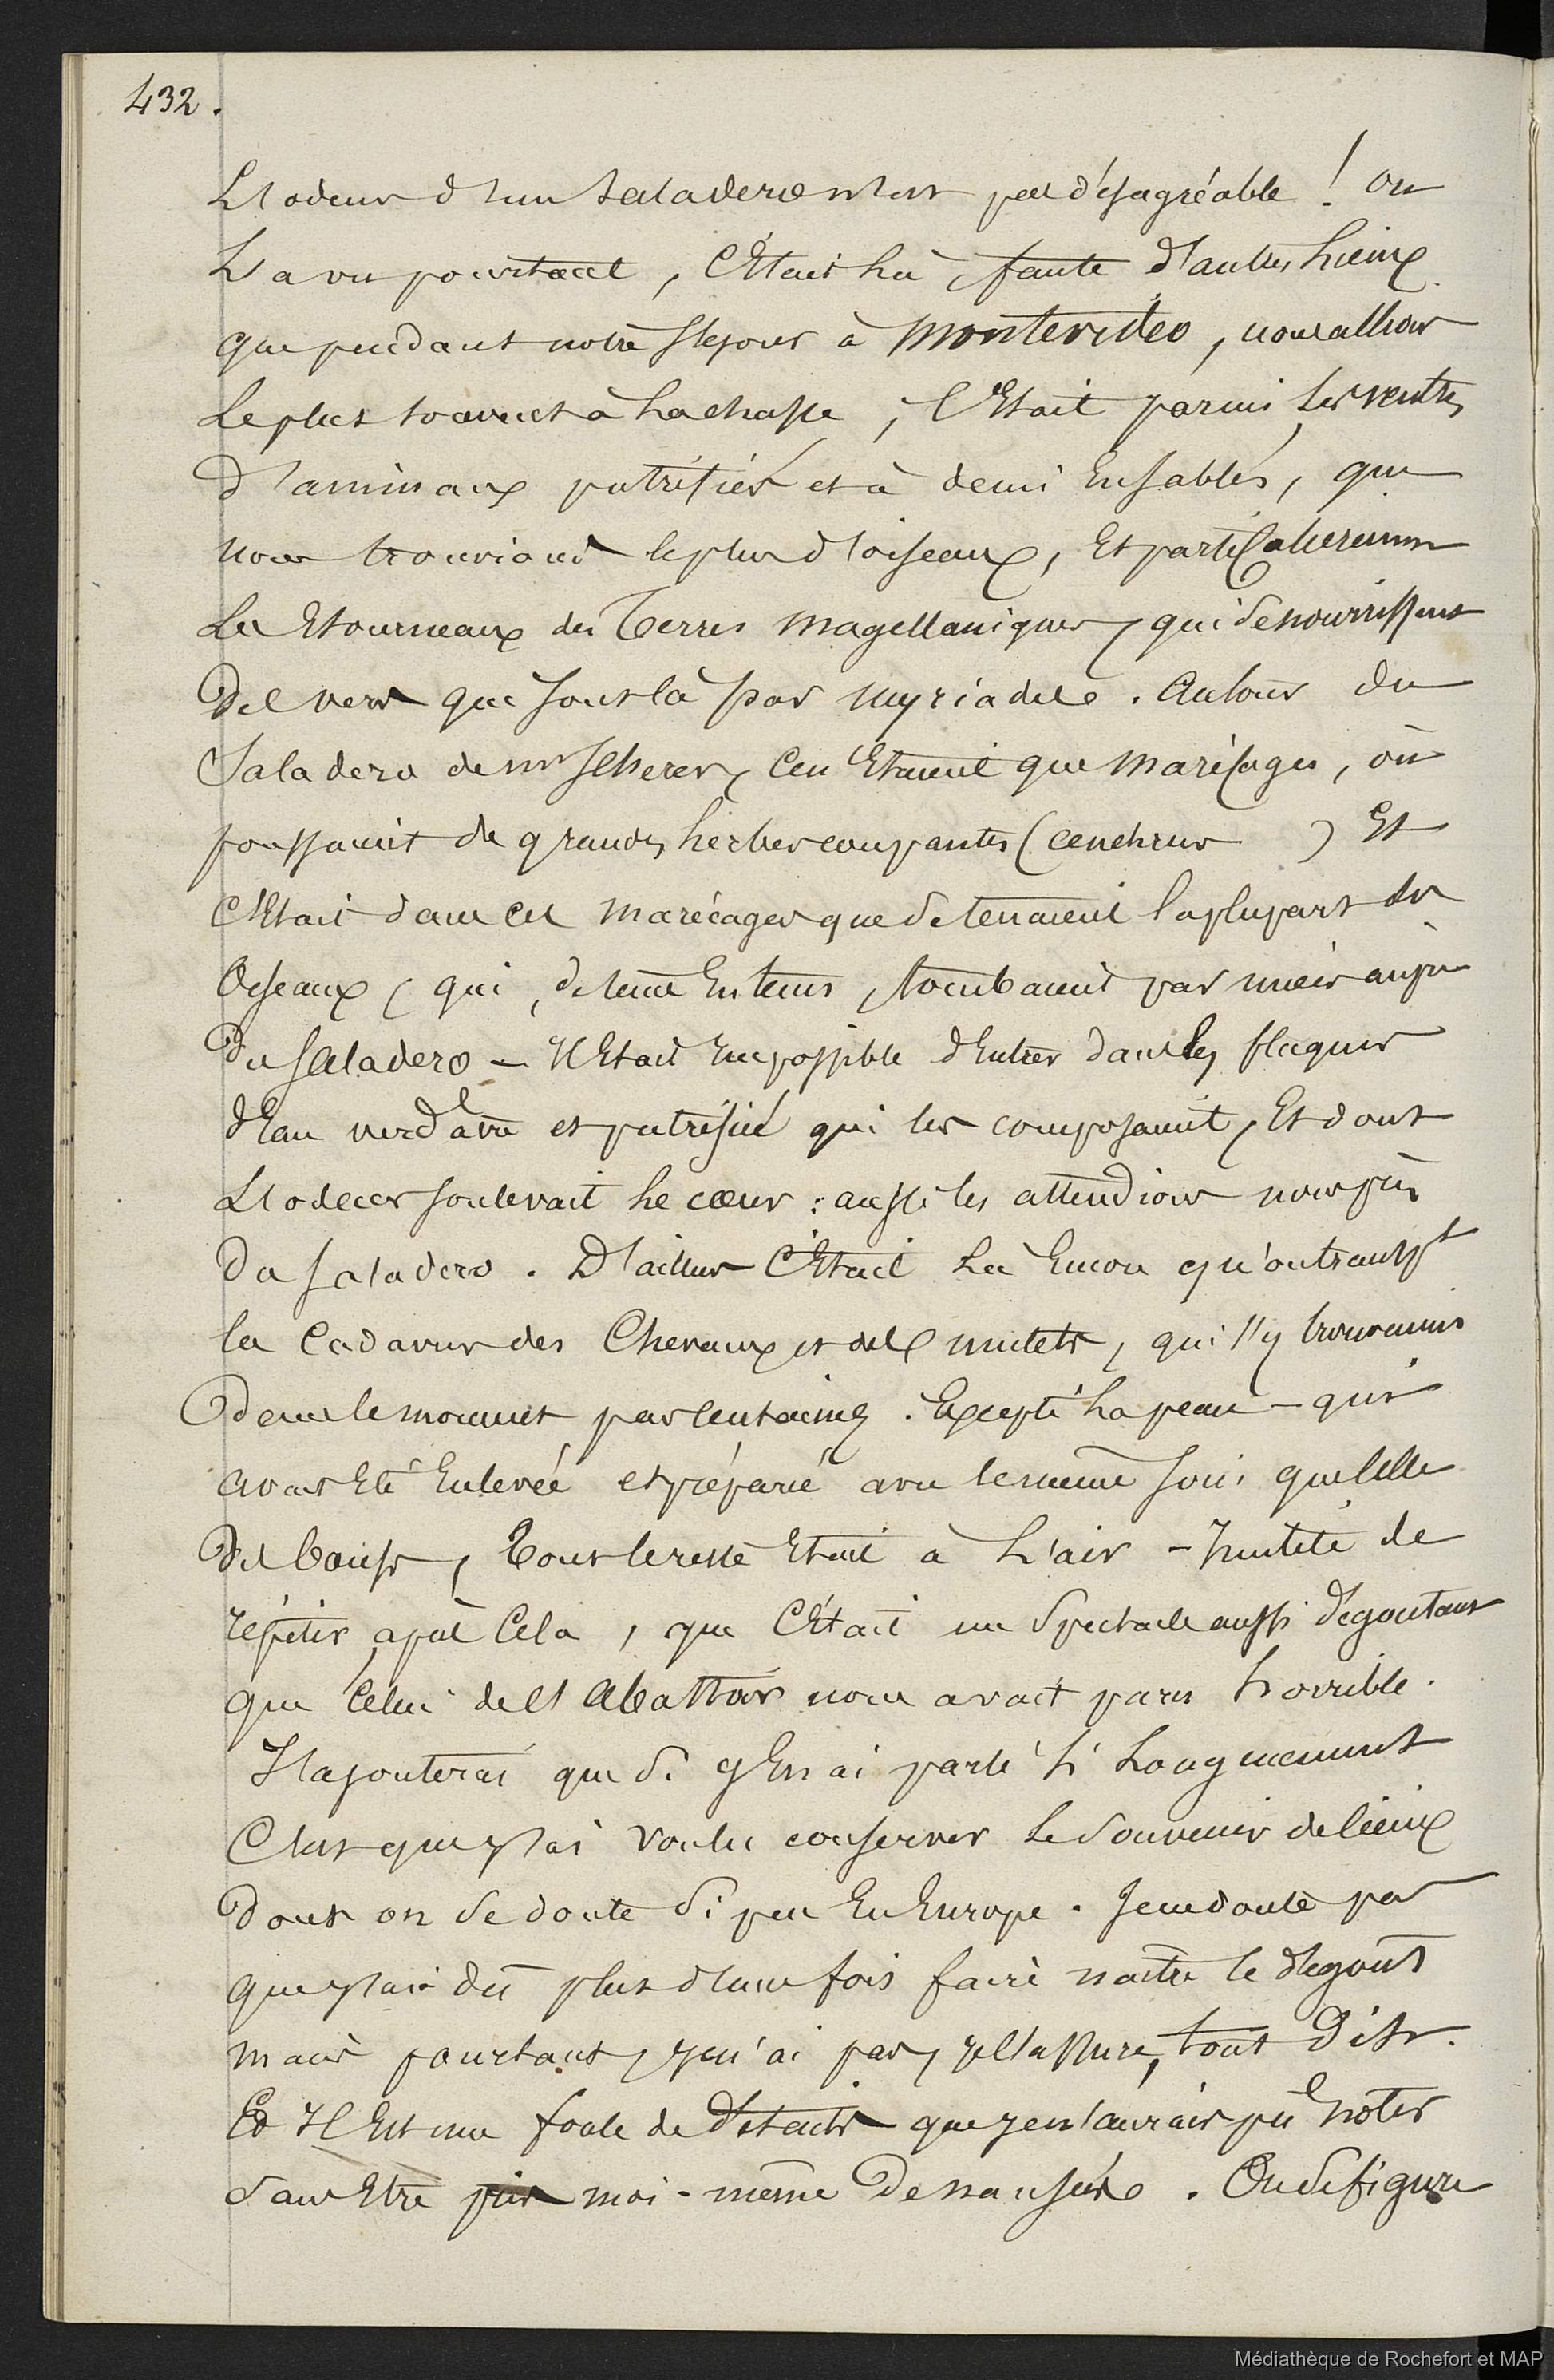 432.
L'odeur d'un saladero n'est pas désagréable ! on
L'a vu pourtant, C'Etait là, faute d'autres Lieux
que pendant notre séjour à Montevideo, nous allions
Le plus souvent à La chasse ; C'Etait parmi Les ventres
d'animaux putréfiés et à demi Ensablés, que
nous trouvions le plus d'oiseaux, Et particulierement
Les Etourneaux des Terres Magellaniques, qui se nourrissent
Des vers qui sont là par myriades. Autour du
Saladero de Mr Scherer, Ce n'Etaient que Marécages, où
poussaient de grandes herbes coupantes (cenchrus ) Et
C'Etait dans ces marécages que se tenaient la plupart des
Oiseaux, qui, de tems En tems, tombaient par nuées auprès
Du Saladero — Il Etait Impossible d'Entrer dans les flaques
d'Eau verdâtre et putréfiée qui les composaient, Et dont
L'odeur soulevait Le cœur : aussi les attendions nous près
Du saladero. D'ailleurs C'Etait Là Encore qu'on transpt
les Cadavres des Chevaux et des mulets, qui s'y trouvaient
Dans le moment par centaines. Excepté La peau — qui
avait Eté Enlevée et préparée avec le même soin que Celle
Des bœufs, Tout le reste Etait à L'air — Inutile de
répéter après Cela, que C'Etait un Spectacle aussi dégoutant
que Celui de l'Abattoir nous avait paru horrible.
J'ajouterai que si j'En ai parlé si Longuement
C'est que j'ai voulu conserver Le Souvenir de lieux
Dont on se doute si peu En Europe. Je ne doute pas
que j'ai dû plus d'une fois faire naître le dégout
mais pourtant, je n'ai pas, je l'assure, tout Dit.
Et Il Est une foule de Détails que je n'aurais pu Noter
sans Etre pris moi-même De nausées. On se figure
Médiathèque de Rochefort et MAP